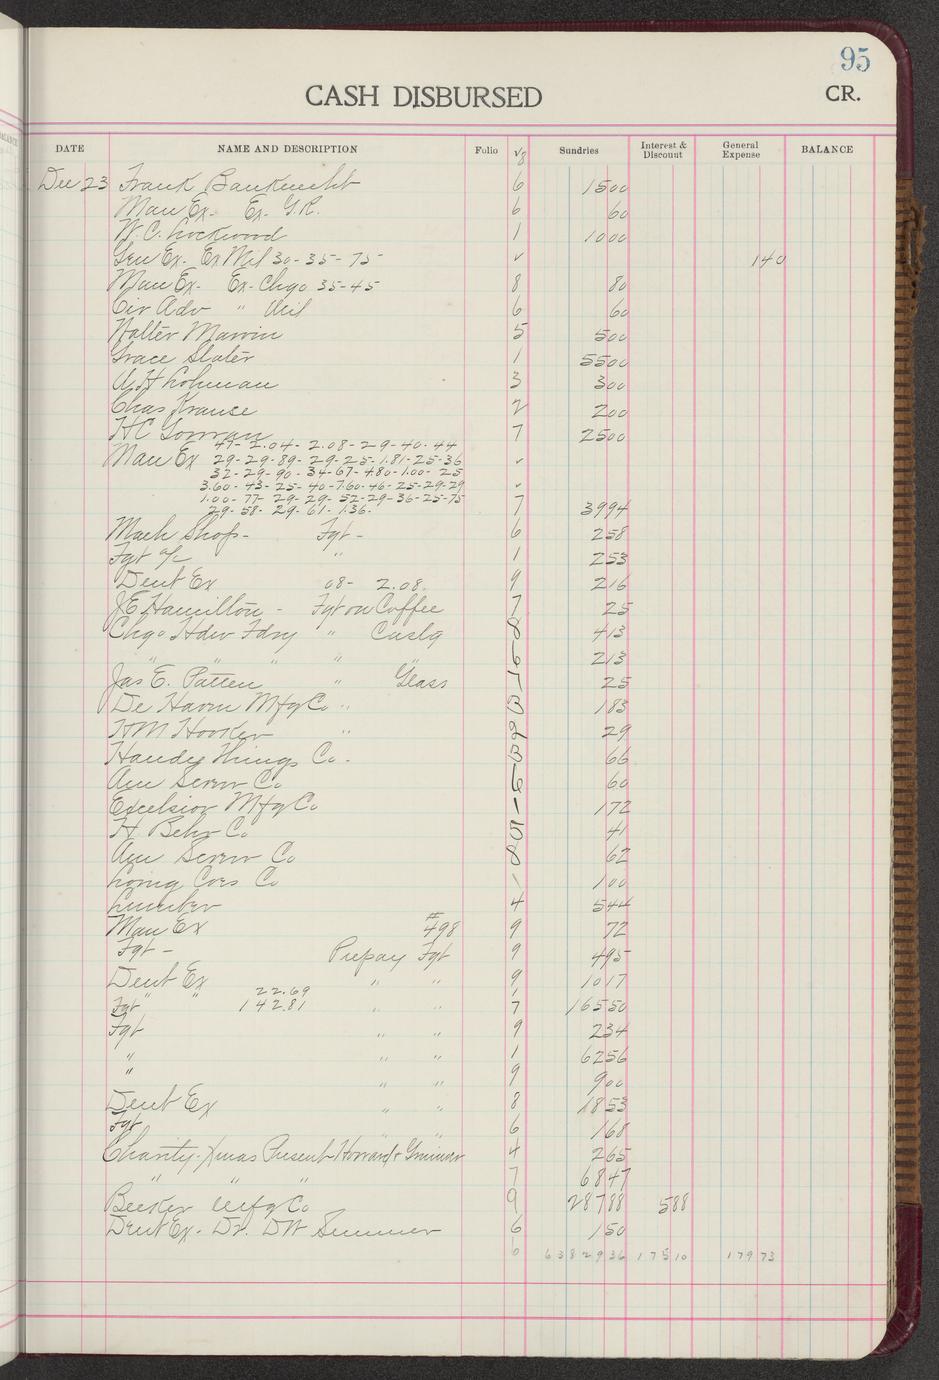 95
CASH DISBURSED
CR.
DATE NAME AND DESCRIPTION Folio √8 Sundries Interest & Discount General Expense BALANCE
Dec 23 Frank Bauknecht 6 1500
Man Ex- Ex. G.R. 6 60
W. C. Lockwood 1 1000
Gen Ex- Ex Mil 30-35-75- ✓ 140
Man Ex- Ex-Chgo 35-45 8 80
Cir Adv " Mil 6 60
Walter Marvin 5 500
Grace Slater 1 5500
A H Lohman 3 300
Chas Krause 2 200
HC 7 2500
47- 2.04- 2.08- 29- 40- 44
Man Ex 29-29-89- 29-25-1.81-25-36 ✓
32-29-90- 34-67-480-1.00- 25
3.60- 43- 25- 40-7.60-46-25-29-29 ✓
1.00- 77- 29- 29- 52-29-36-25-75
29- 58- 29- 61- 1.36- 7 3994
Mach Shop- Fgt- 6 258
Fgt a/c " 1 253
Dent Ex 08- 2.08. 9 216
J E Hamilton- Fgt on Coffee 7 25
Chgo Hdw Fdry " Castg 8 413
" " " " " 6 213
Jas E. Patten " Glass 7 25
De Haven Mfg Co " 3 183
H M Hooker " 29
Handy Things Co. 3 66
Am Screw Co 6 60
Excelsior Mfg Co 1 172
H. Behr Co 5 41
Am Screw Co 8 62
Loring Coes Co 1 100
Lumber 4 544
Man Ex #498 9 72
Fgt- Prepay Fgt 9 495
Dent Ex " " 9 1017
22.69
Fgt " " 142.81 " " 7 16550
Fgt " " 9 234
" " " 1 6256
" " " 9 900
Dent Ex " " 8 1853
Fgt " " 6 168
Charity-Xmas Present 4 265
" " " 7 6847
Becker Mfg Co 9 28788 588
Dent Ex- Dr. D W Sumner 6 150
6 6382936 17510 17973